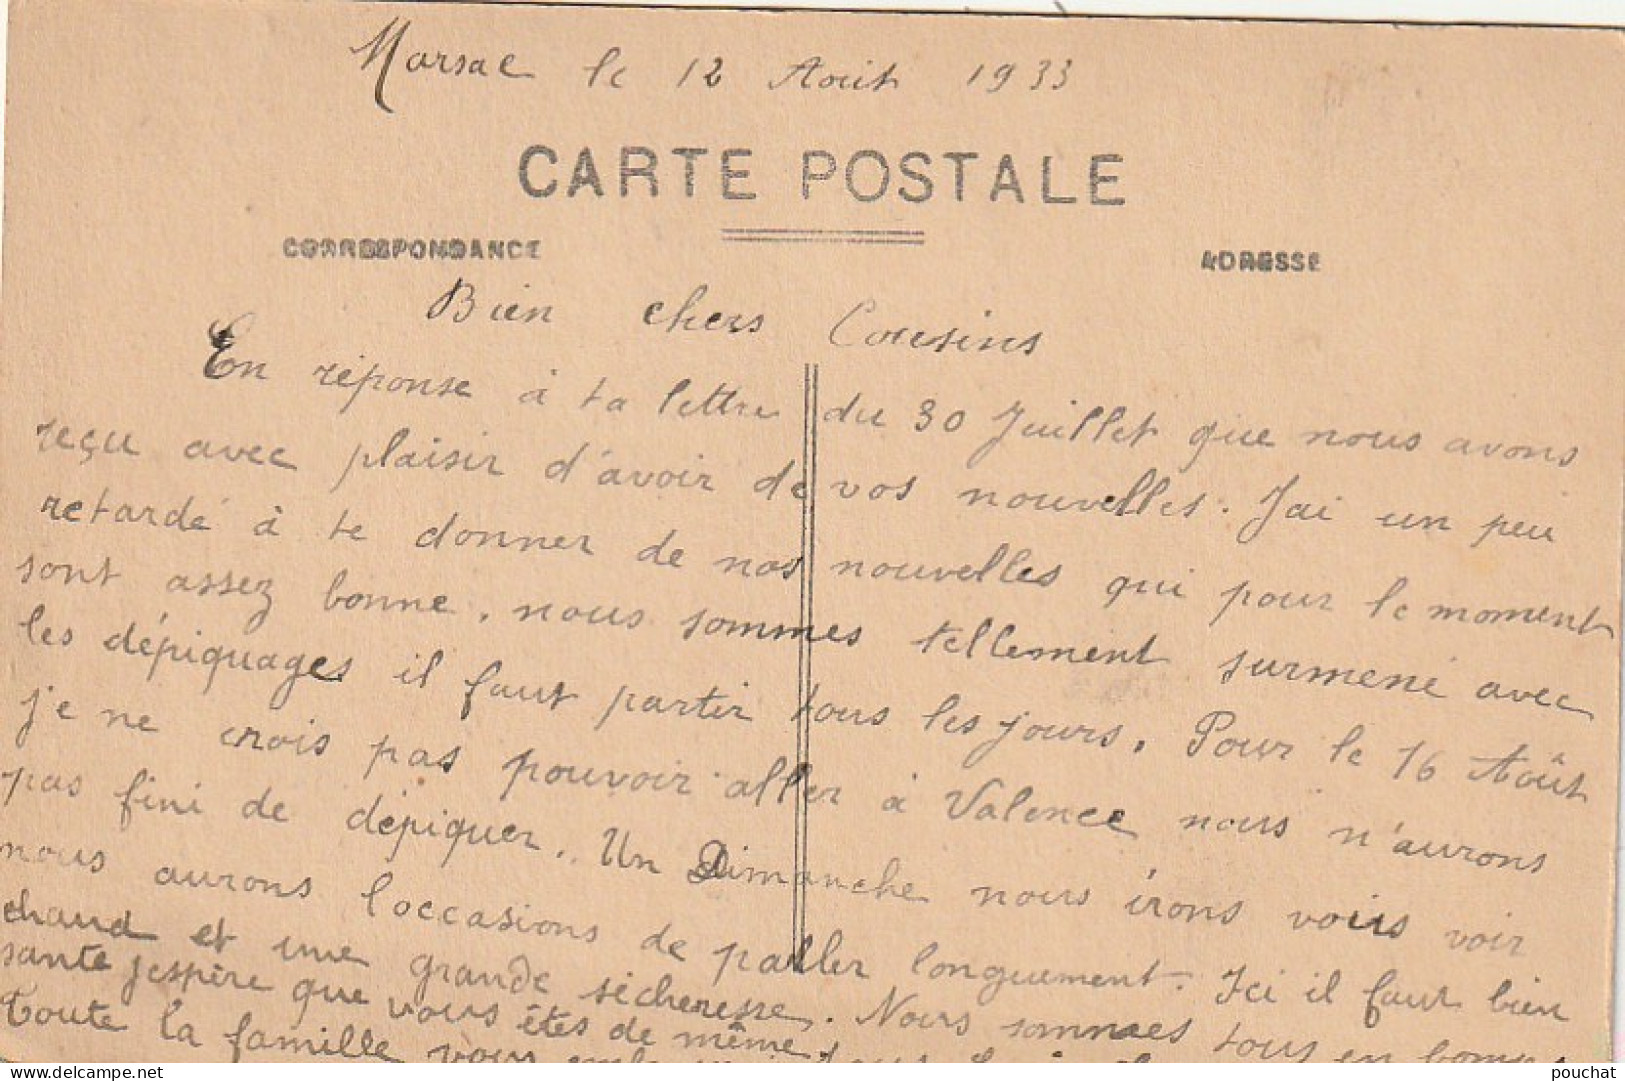 Marsac le 12 Août 1933
CARTE POSTALE
CORRESPONDANCE ADRESSE
Bien chers Cousins
En réponse à ta lettre du 30 Juillet que nous avons
reçu avec plaisir d'avoir de vos nouvelles. Jai un peu
retardé à te donner de nos nouvelles qui pour le moment
sont assez bonne. nous sommes tellement surmené avec
les dépiquages il faut partir tous les jours. Pour le 16 Août
je ne crois pas pouvoir aller à Valence nous n'aurons
pas fini de dépiquer. Un Dimanche nous irons voirs voir
nous aurons l'occasions de paller longuement. Ici il faut bien
chaud et une grande sécheresse. Nous sommes tous en bonne
santé jespère que vous êtes de même
Toute la famille vous
pouchat